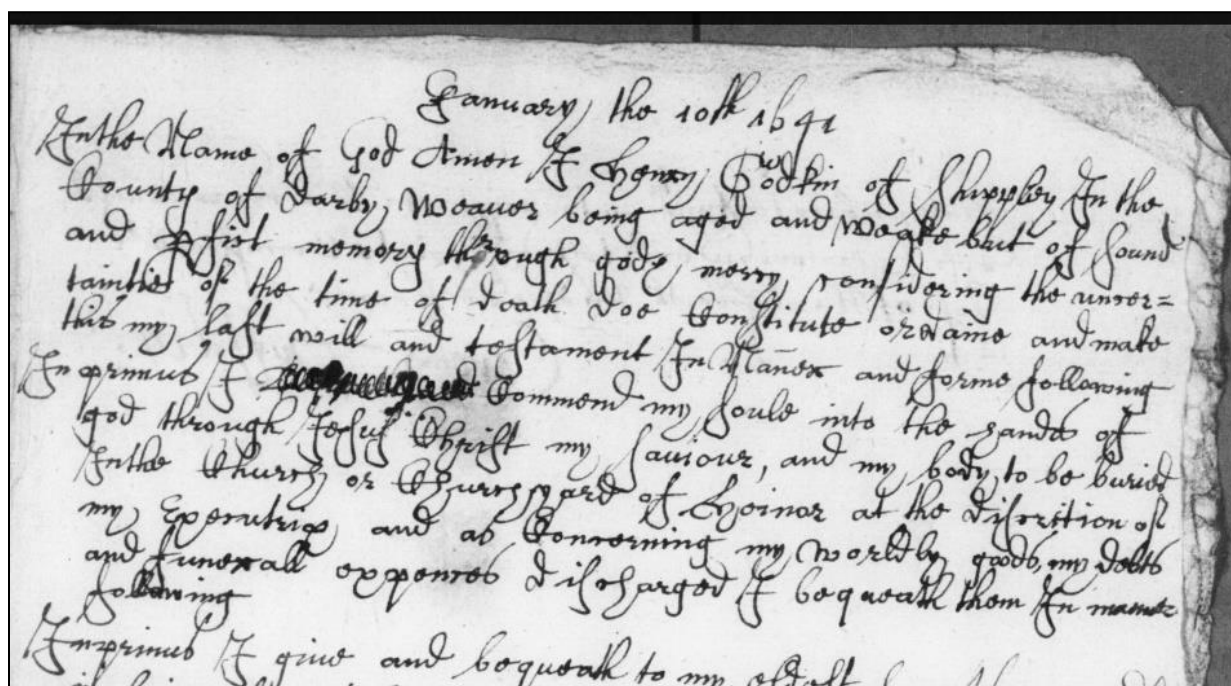 January the 10th 1641
In the Name of God Amen I Henry Godkin of Shipley In the
County of Darby Weaver being aged and weake but of sound
and pfict memory through gods mercy considering the uncer=
taintie of the time of death doe Constitute ordaine and make
this my last will and testament In Maner and forme following
Inprimus I Commend my soule into the hands of
god through Jesus Christ my saviour, and my body to be buried
In the Church or Churchyard of Heinor at the discrition of
my Executrix and as Concerning my worldly gods, my debts
and funerall expences discharged I bequeath them In maner
following
Inprimus I give and bequeath to my eldest